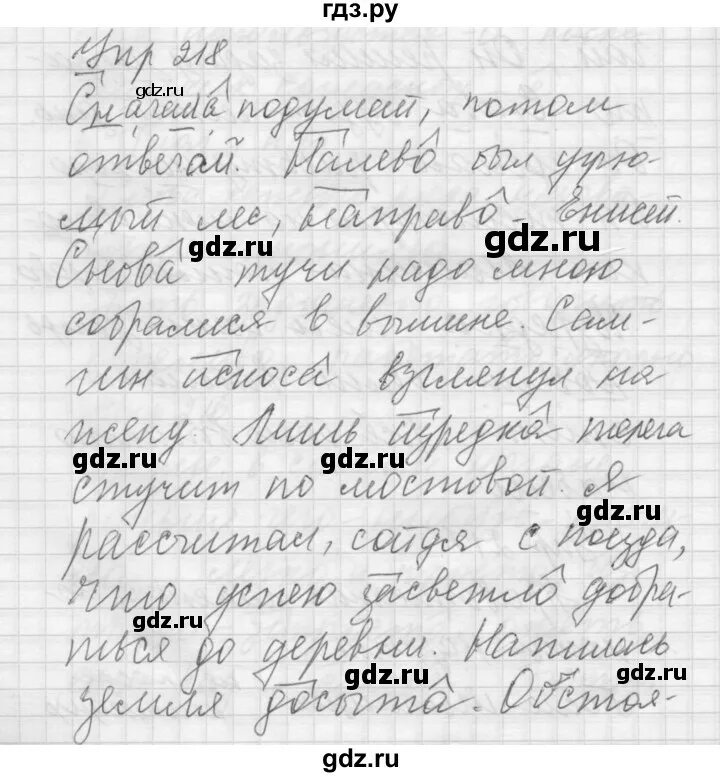 гдз.ру
Упр 218
gdz.ru
Сначала подумай, потом
отвечай. Налево был угрю-
мый лес, направо - Енисей.
gdz.ru
gdz.ru
Снова тучи надо мною
собралися в вышине. Сам-
гин искоса взглянул на
жену. Лишь изредка телега
gdz.ru
gdz.ru
стучит по мостовой. Я
gdz.ru
рассчитал, сойдя с поезда,
что успею засветло добра-
ться до деревни. Напилась
gdz.ru
gdz.ru
земля досыта. Обстоя-
gdz.ru